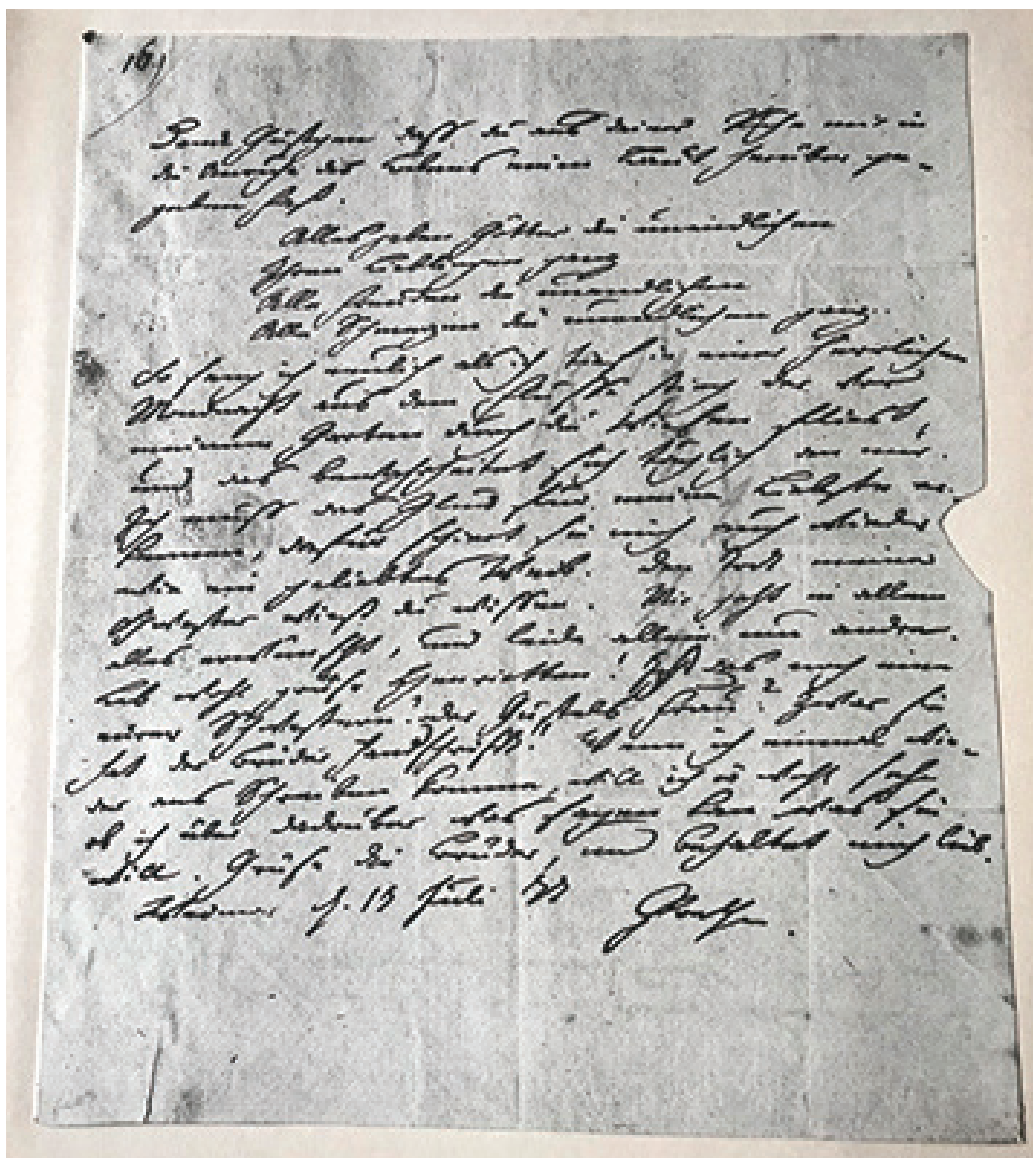 16)
Danck Gustgen dass du aus deiner Ruhe mir in
die Unruhe des Lebens einen Laut herüber ge-
geben hast.
Alles geben Götter die unendlichen
Ihren Lieblingen ganz
Alle Freuden die unendlichen
Alle Schmerzen die unendlichen ganz.
So sang ich neulich als ich tief in einer herrlichen
Mondnacht aus dem Flusse stieg der vor
meinem Garten durch die Wiesen fliest,
und das bewahrheitet sich täglich an mir.
Ich muss das Glück für meine Liebste er-
kennen, dafür schiert sie mich auch wieder
wie ein geliebtes Weib. Den Todt meiner
Schwester wirst du wissen. Mir geht in allem
alles erwünscht, und leide allein um andre.
Leb wohl grüse Henrietten! Ist das noch eine
eurer Schwestern? oder Frau? Zwar sie
hat der brüder Handschrifft! Wenn ich einmal wie-
der ans Schreiben komme, will ich ia wohl sehn
ob ich über dadrüber was sagen kan was sie
will. Grüse die brüder, und behaltet mich lieb.
Weimar d. 17 Juli 77 Goethe.